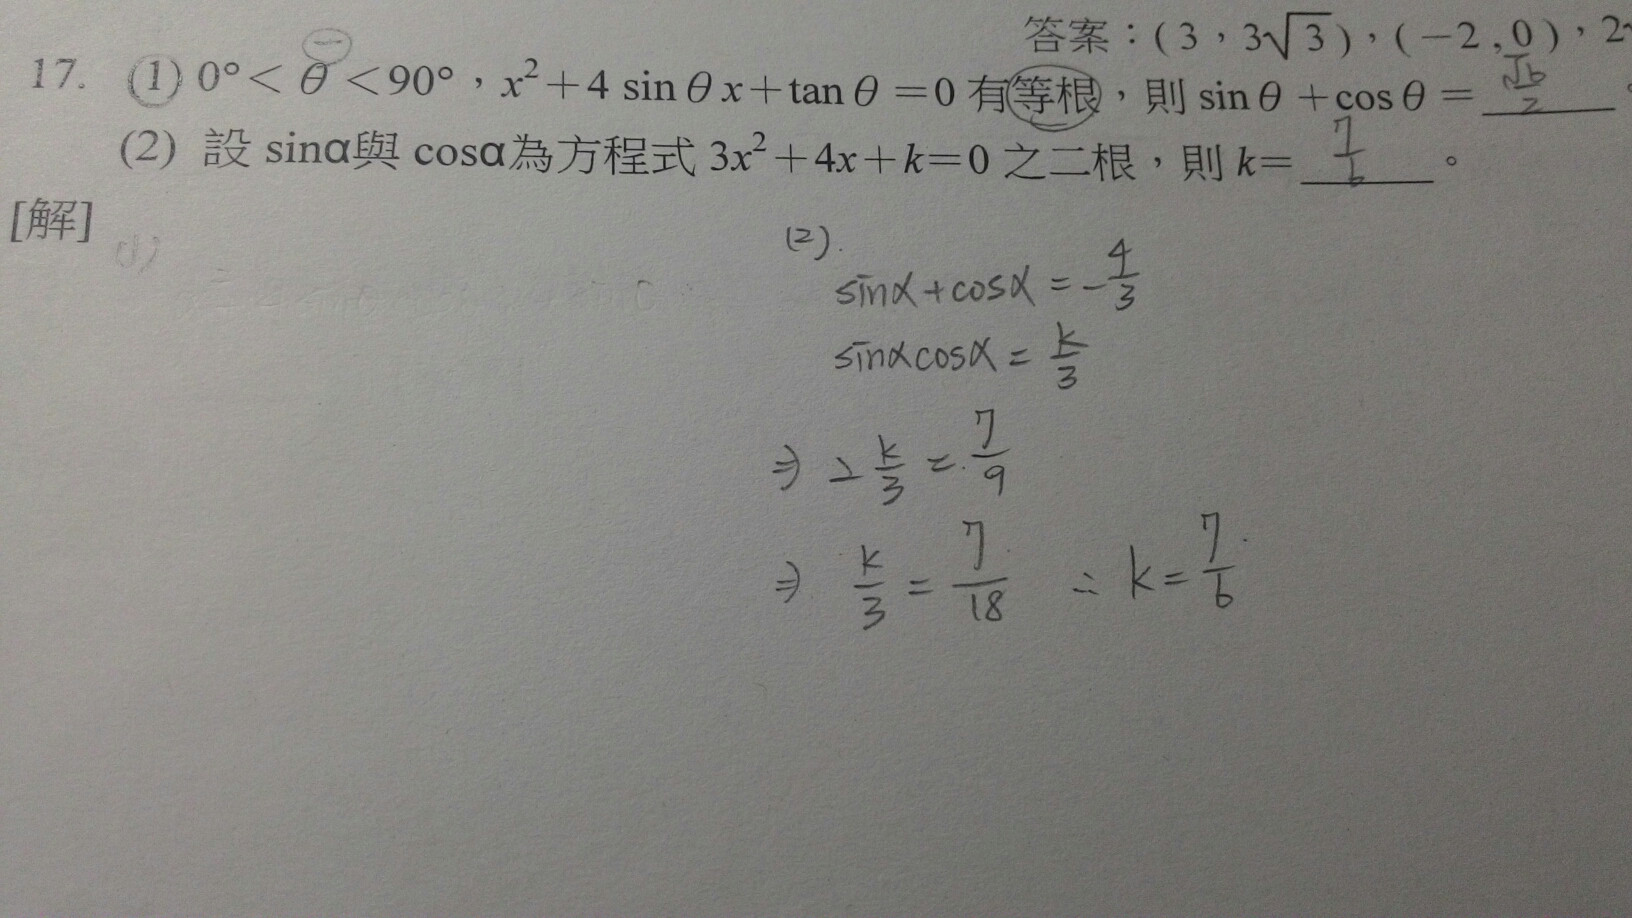 答案：(3，3√3)，(−2，0)，2
17. (1) 0°< θ <90°，x²+4 sin θ x+tan θ =0 有等根，則 sin θ +cos θ = √6/2 。
(2) 設 sinα與 cosα為方程式 3x²+4x+k=0 之二根，則 k= 7/6 。
[解]
(1)
(2).
sinα+cosα = -4/3
sinαcosα = k/3
⇒ 2 k/3 = 7/9
⇒ k/3 = 7/18 ∴ k = 7/6